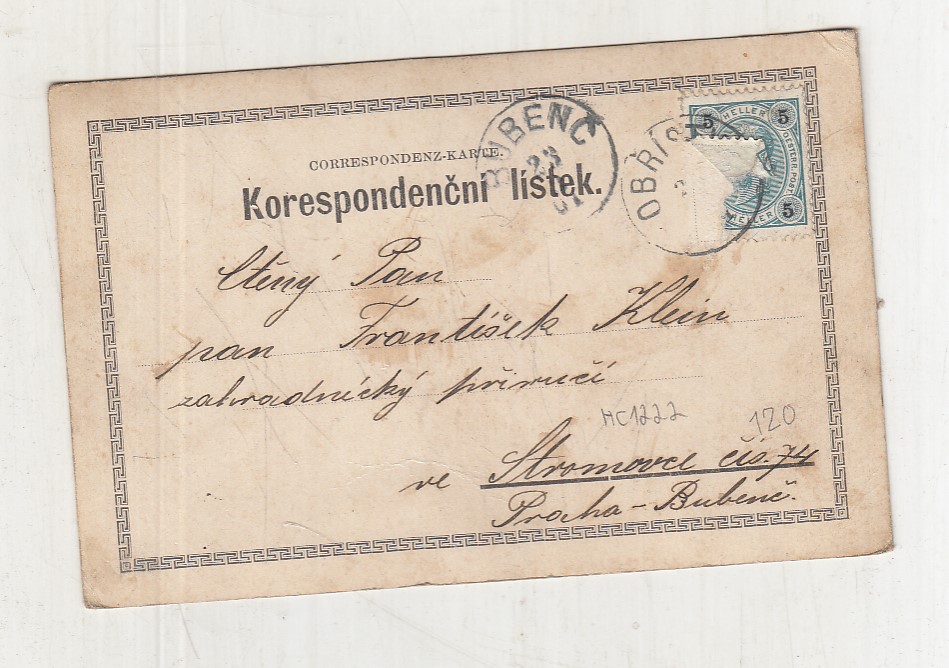 CORRESPONDENZ-KARTE.
Korespondenční lístek.
BUBENČ
23
OBŘÍS
5 HELLER 5
OESTERR. POST.
HELLER 5
Ctěný Pan
pan František Klein
zahradnický příručí
MC1222
120
ve Stromovce čís. 74
Praha-Bubenč.